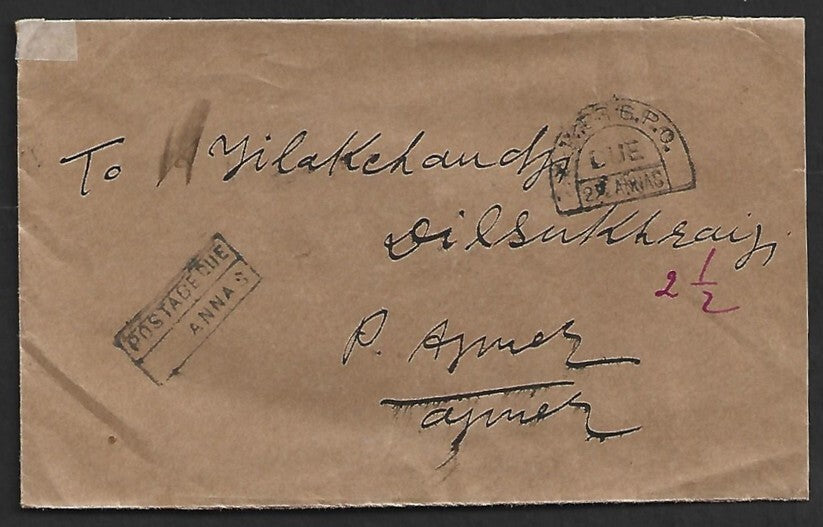 G.P.O.
DUE
2½ ANNAS
To Tilakchandji
Dilsukhraiji,
2 1/2
POSTAGE DUE
ANNAS
P. Ajmer
Ajmer